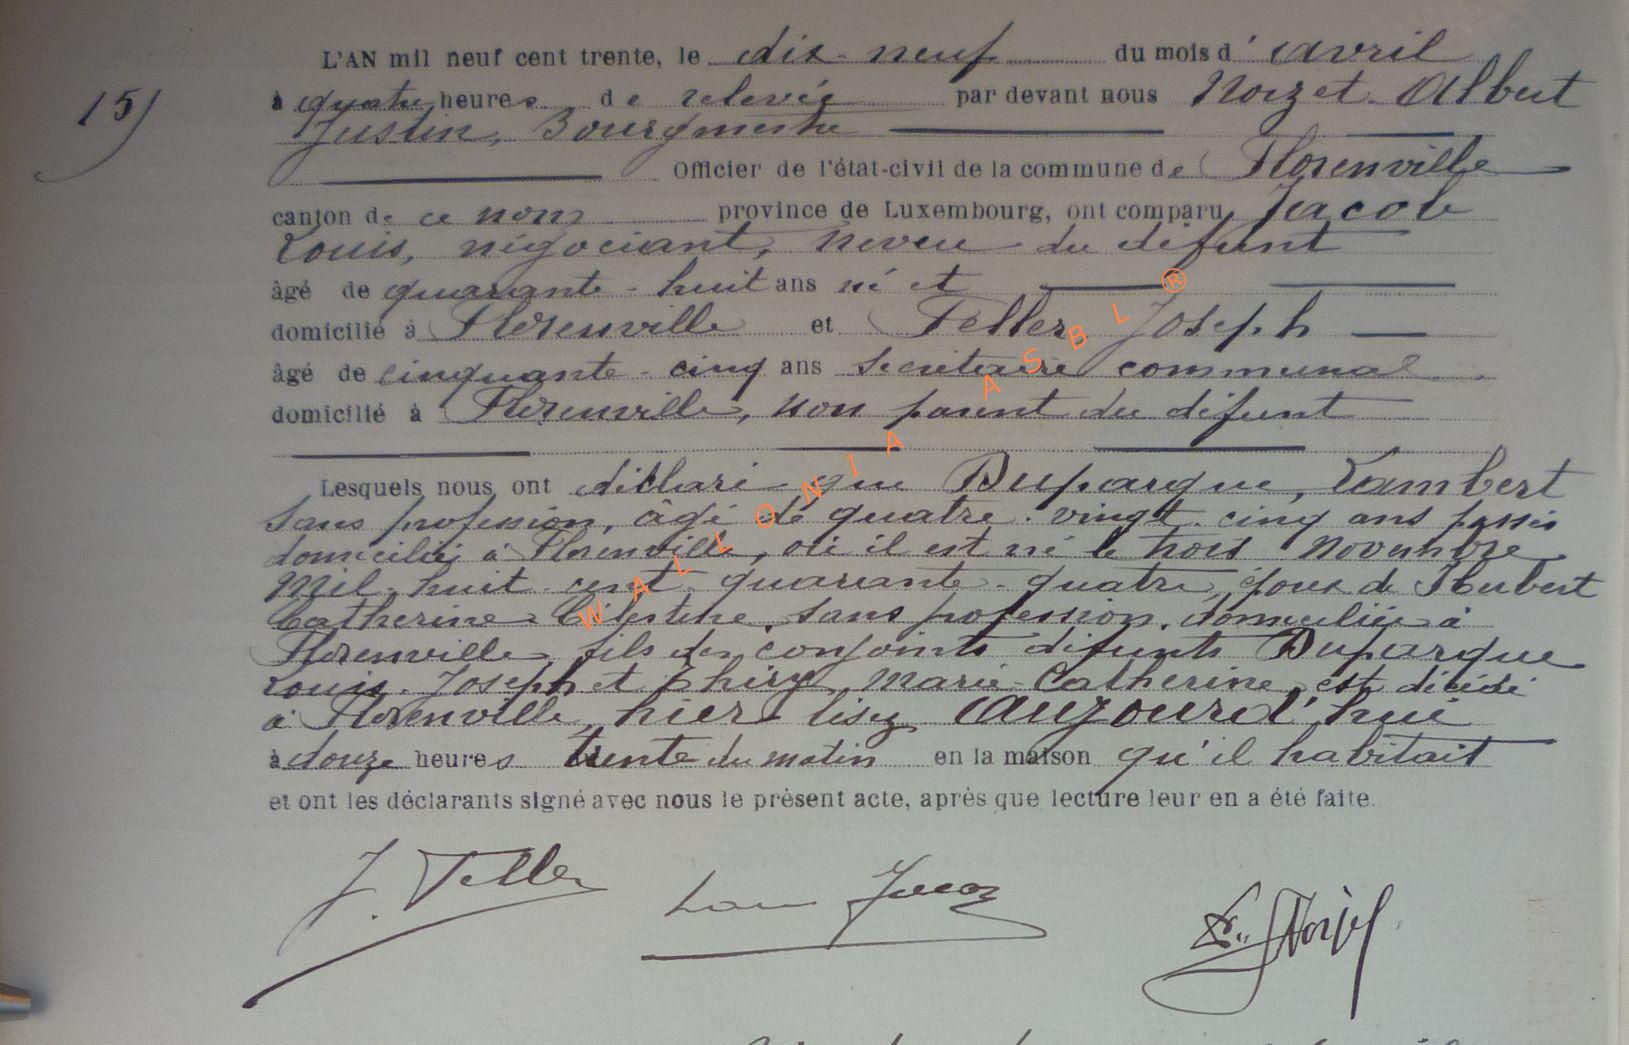 L'AN mil neuf cent trente, le dix-neuf du mois d'avril
15)
à quatre heures de relevée par devant nous Noizet Albert
Justin, Bourgmestre
Officier de l'état-civil de la commune de Florenville
canton de ce nom province de Luxembourg, ont comparu Jacob
Louis, négociant, neveu du défunt
âgé de quarante-huit ans né et
domicilié à Florenville et Feller Joseph
âgé de cinquante-cinq ans secrétaire communal
domicilié à Florenville, non parent du défunt
Lesquels nous ont déclaré que Duparque, Lambert
sans profession, âgé de quatre-vingt-cinq ans passés
domicilié à Florenville, où il est né le trois Novembre
mil huit cent quarante-quatre, époux de Hubert
Catherine Célestine, sans profession, domiciliée à
Florenville, fils des conjoints défunts Duparque
Louis-Joseph et Thiry Marie-Catherine, est décédé
à Florenville, hier lisez aujourd'hui
à douze heures trente du matin en la maison qu'il habitait
et ont les déclarants signé avec nous le présent acte, après que lecture leur en a été faite.
J. Feller Louis Jacob Noizet
WALLONIA ASBL ®